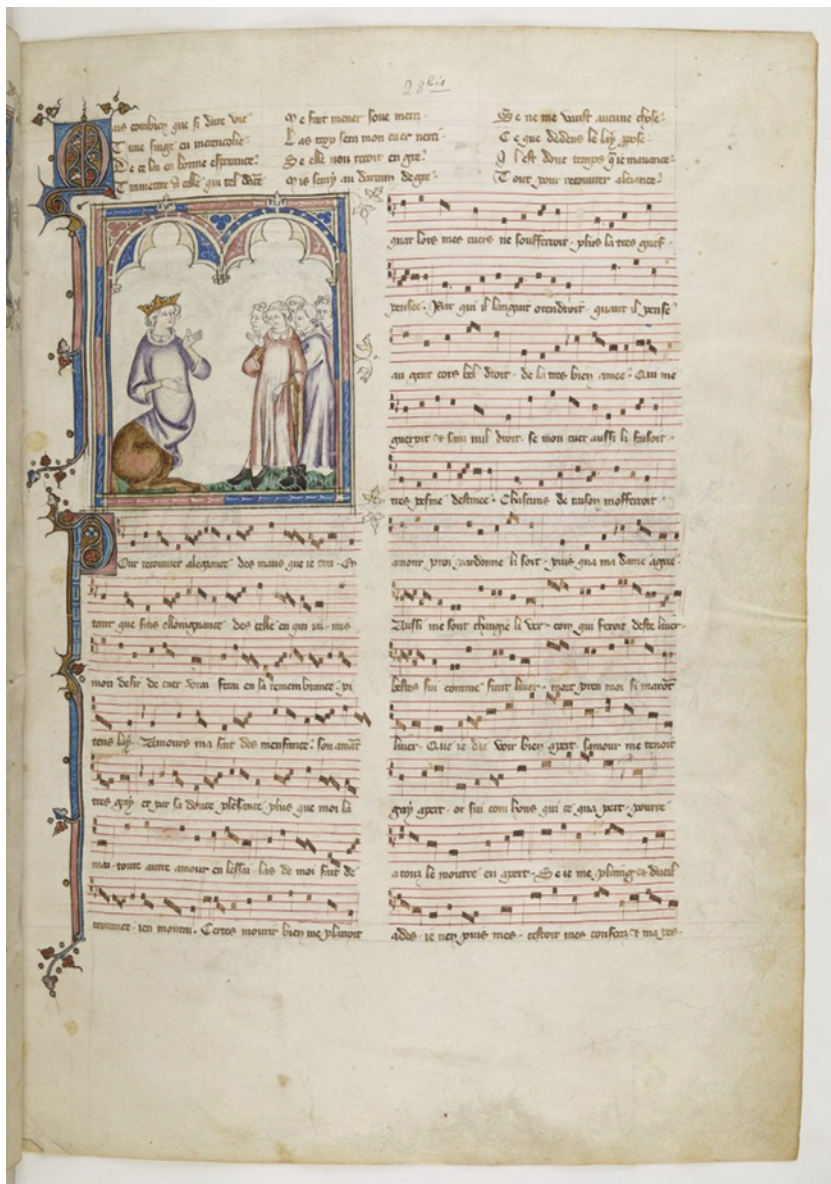 28bis
Mais combien que si dure vie
T
De ce lai en bonne esperance
Trametre a celle qui tel
Me fait mener soue merci
Las trop sem mon cuer nerci
Se elle non recoit en gre
Mis seray au darrain degre
Se ne me vausist aucune chose
Ce que dedens le lay
Il est donc temps q̄ ie mauance
Tout pour recouurer aleiance
Pour recouurer alegance des maus que ie trai Et
tant que fais ellongnance des celle en qui iai mis
mon desir de cuer vrai ferai en sa remembrance pi
teus lay Amours ma fait des menfance son amāt
tres gay et par sa douce plesance plus que moi la
mai toute autre amour en lessai las de moi fait de
ieu morrai Certes mourir bien me plairoit
quar lors mes cuers ne soufferroit plus la tres grief
pensee Par qui il languit orendroit quant il pense
au gent cors bel droit de la tres bien amee Qui me
guerroie et sanz nul droit se mon cuer aussi li faisoit
tres pesme destinee Chascuns de raison mofferroit
amour pardonne li soit puis qua ma dame agree
Aussi me sont changie li ver com qui feroit deste
bestes sui comme sunt
Que ie di voir bien apert samour me tenoit
gay apert or sui com hons qui ce qua pert
a touz le moutre en apert Se ie me plaing et dueil
ades ie nen puis mes estoit mes confors et ma pes